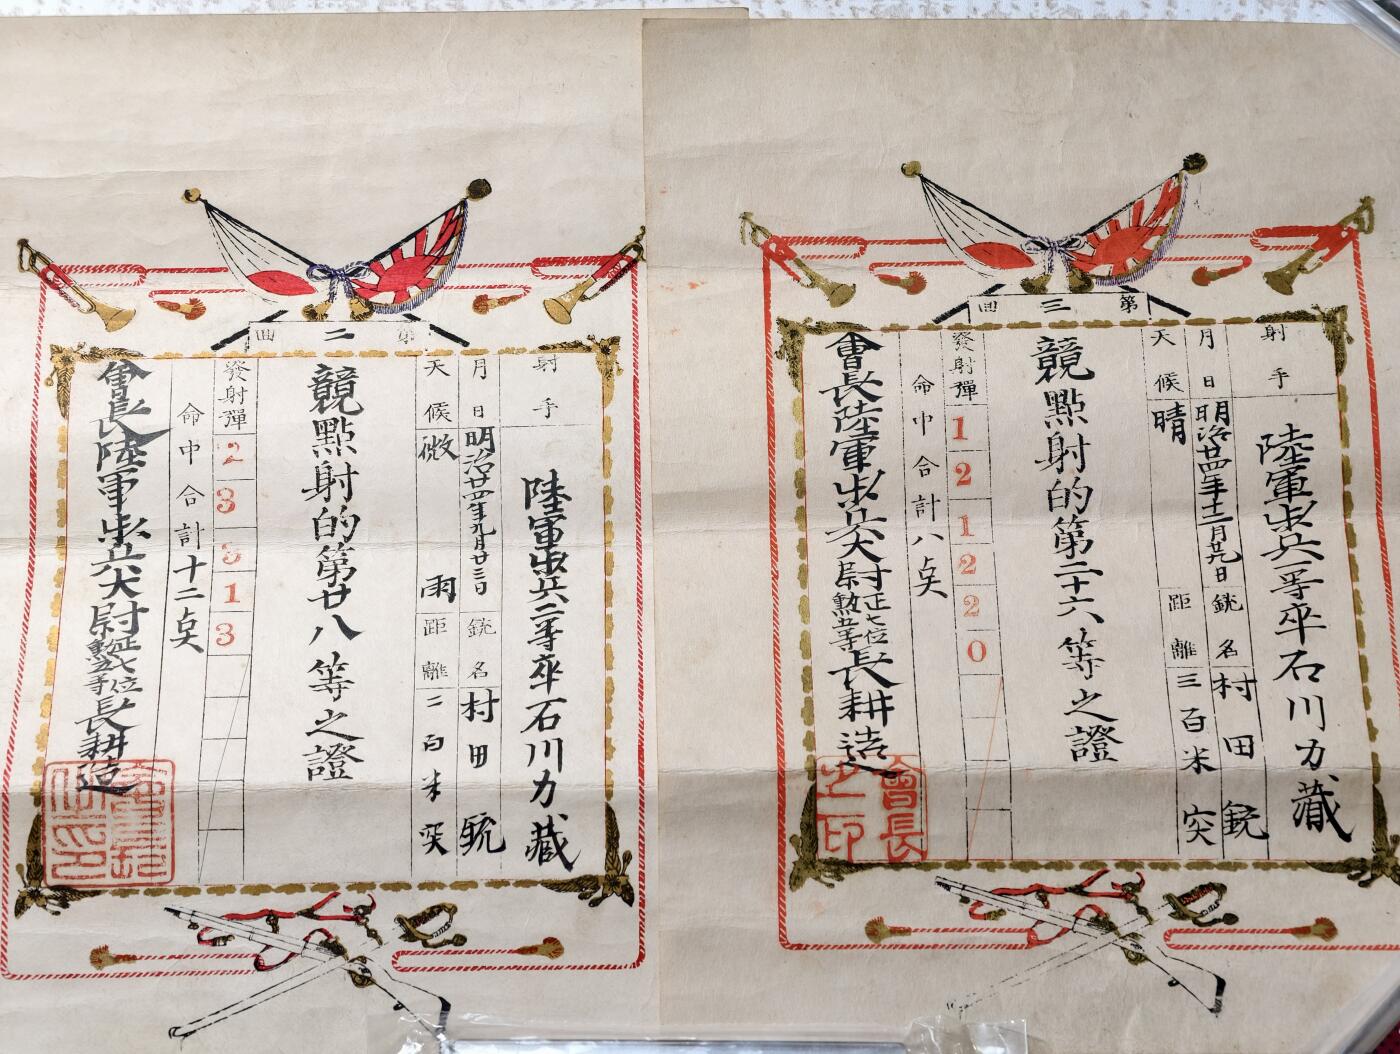 第三回
射手 陸軍歩兵一等卒石川力蔵
月日 明治廿四年十二月廿九日 銃名 村田銃
天候 晴 距離 三百米突
競點射的第二十六等之證
發射彈 1 2 1 2 2 0
命中合計 八点
會長陸軍歩兵大尉正七位勲五等長耕造
會長之印
第二回
射手 陸軍歩兵二等卒石川力藏
月日 明治廿四年九月廿三日 銃名 村田銃
天候 微雨 距離 二百米突
競點射的第廿八等之證
發射彈 2 3 3 1 3
命中合計 十二点
會長陸軍歩兵大尉正七位勲五等長耕造